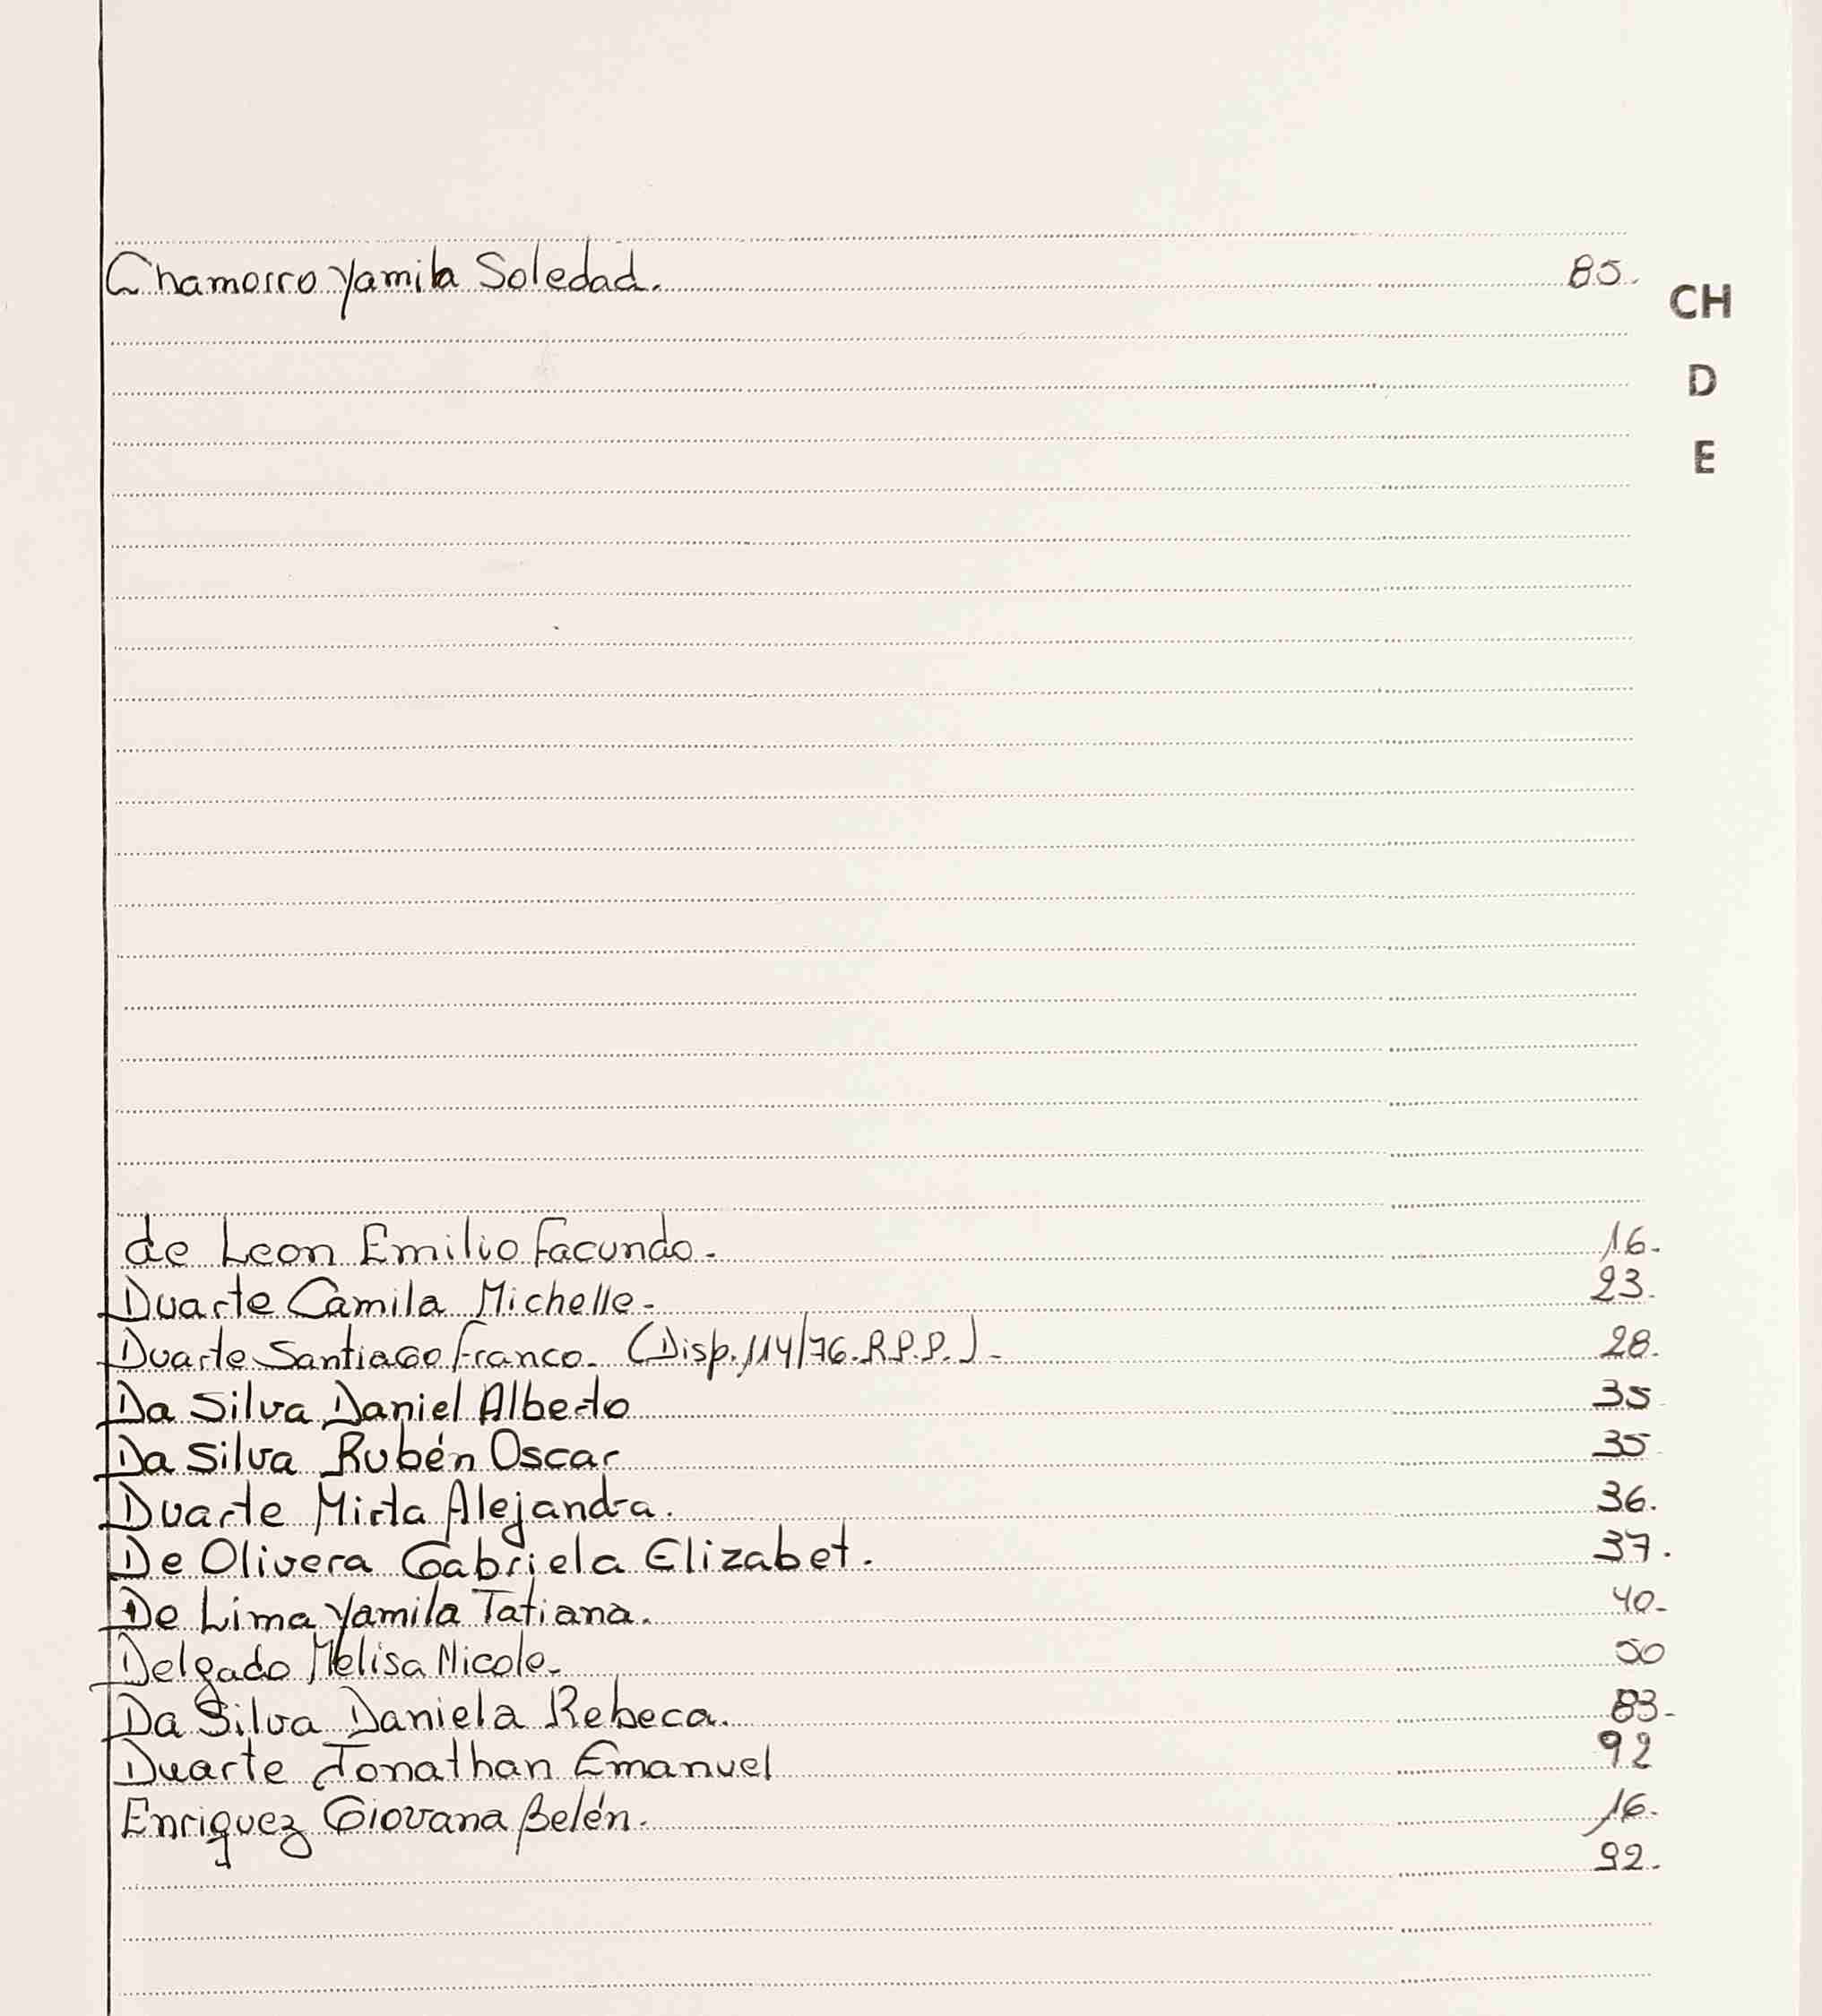 Chamorro Yamila Soledad. 85.
CH
D
E
de Leon Emilio Facundo. 16.
Duarte Camila Michelle. 23.
Duarte Santiago Franco. (Disp. 114/76. R.P.P.) 28.
Da Silva Daniel Alberto 35
Da Silva Rubén Oscar 35
Duarte Mirta Alejandra. 36.
De Olivera Gabriela Elizabet. 37.
De Lima Yamila Tatiana. 40.
Delgado Melisa Nicole. 50
Da Silva Daniela Rebeca. 83.
Duarte Jonathan Emanuel 92
Enriquez Giovana Belén. 16.
92.